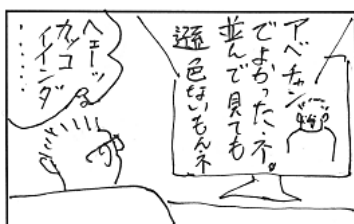 アベチャン
でよかったネ。
並んで見ても
遜色ないもんネ
ヘェーッ
カッコ
イインダ
……